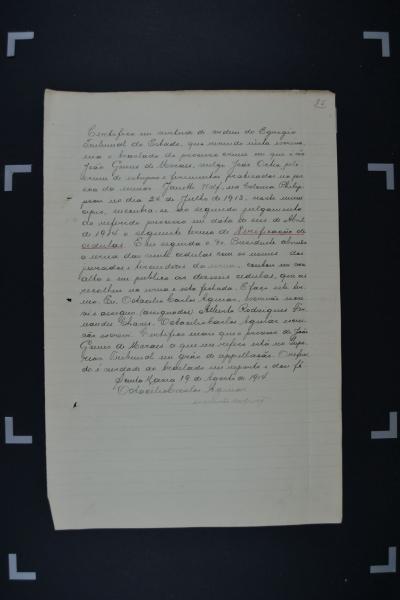 25
Certifico em virtude de ordem do Egregio
Tribunal do Estado, que revendo neste
o traslado do processo crime em que é réo
João Gomes de Moraes, vulgo João Octa, pelo
crime de estupro e ferimentos praticados na pes-
soa da menor Janette Wolf, na Colonia Philip-
pson no dia 24 de Julho de 1913, neste muni-
cipio, encontra-se no segundo julgamento
do referido processo em data de seis de Abril
de 1914 o seguinte termo de Verificação de
cedulas. E em seguida o Dr. Presidente abrindo
a urna das vinte cedulas com os nomes dos
jurados e tirando-as da urna, contou em voz
alta e em publico as mesmas cedulas, que as
recolheu na urna e esta fechada. E faço este ter-
mo. Eu Octacilio Carlos Aguiar, escrivão
escrevi e assigno (assignados) Alberto Rodrigues Fer-
nandes Chaves. Octacilio Carlos Aguiar escri-
vão escrevi. Certifico mais que o processo de João
Gomes de Moraes a que me refiro está no Supe-
rior Tribunal em gráo de appellação. O referi-
do é verdade ao traslado me reporto e dou fé
Santa Maria 19 de Agosto de 1914
Octacilio Carlos Aguiar